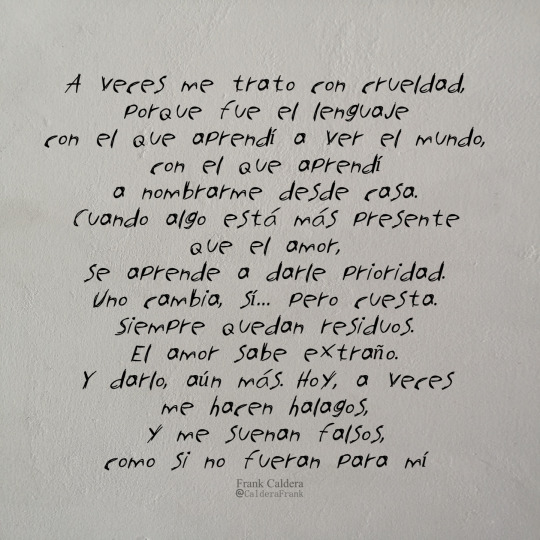 A veces me trato con crueldad,
porque fue el lenguaje
con el que aprendí a ver el mundo,
con el que aprendí
a nombrarme desde casa.
Cuando algo está más presente
que el amor,
se aprende a darle prioridad.
Uno cambia, sí... pero cuesta.
Siempre quedan residuos.
El amor sabe extraño.
Y darlo, aún más. Hoy, a veces
me hacen halagos,
y me suenan falsos,
como si no fueran para mí
Frank Caldera
@CalderaFrank